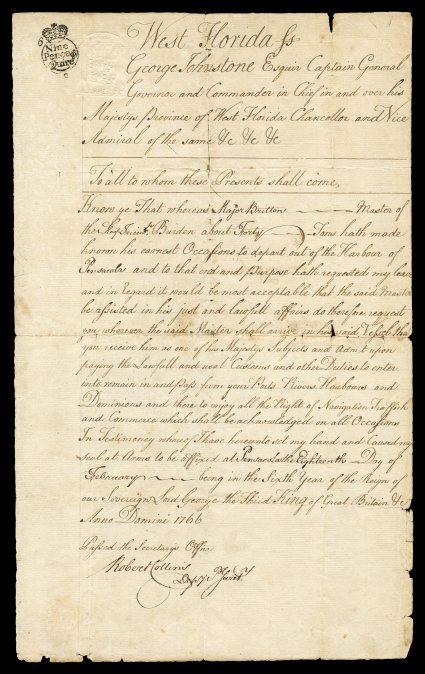 Nine
Pence 
Quire
West Florida Ss
George Johnstone Esquir Captain General
Governor and Commander in Chief in and over his
Majestys Province of West Florida Chancellor and Vice
Admiral of the same &c &c &c
To all to whom these Presents shall come,
Know ye That whereas Major Britton Master of
the Burden about Forty Tons hath made
known his earnest Occasions to depart out of the Harbour of
Pensacola and to that end and Purpose hath requested my leave
and in Regard it would be most acceptable that the said Master
be assisted in his just and lawfull affairs do therefore request
you wherever the said Master shall arrive in his said Vessel that
you receive him as one of his Majestys Subjects and Admit upon
paying the Lawfull and usual Customs and other Duties to enter
into remain in and Pass from your Ports Rivers Harbours and
Dominions and there to enjoy all the Right of Navigation Traffick
and Commerce which shall be acknowledged on all Occasions
In Testimoney whereof I have hereunto set my hand and Caused my
Seal at Arms to be affixed at Pensacola the Eighteenth Day of
February being in the Sixth Year of the Reign of
our Sovereign Lord George the Third King of Great Britain &c
Anno Domini 1766
Passed the Secretarys Office
Robert Collins
Depy